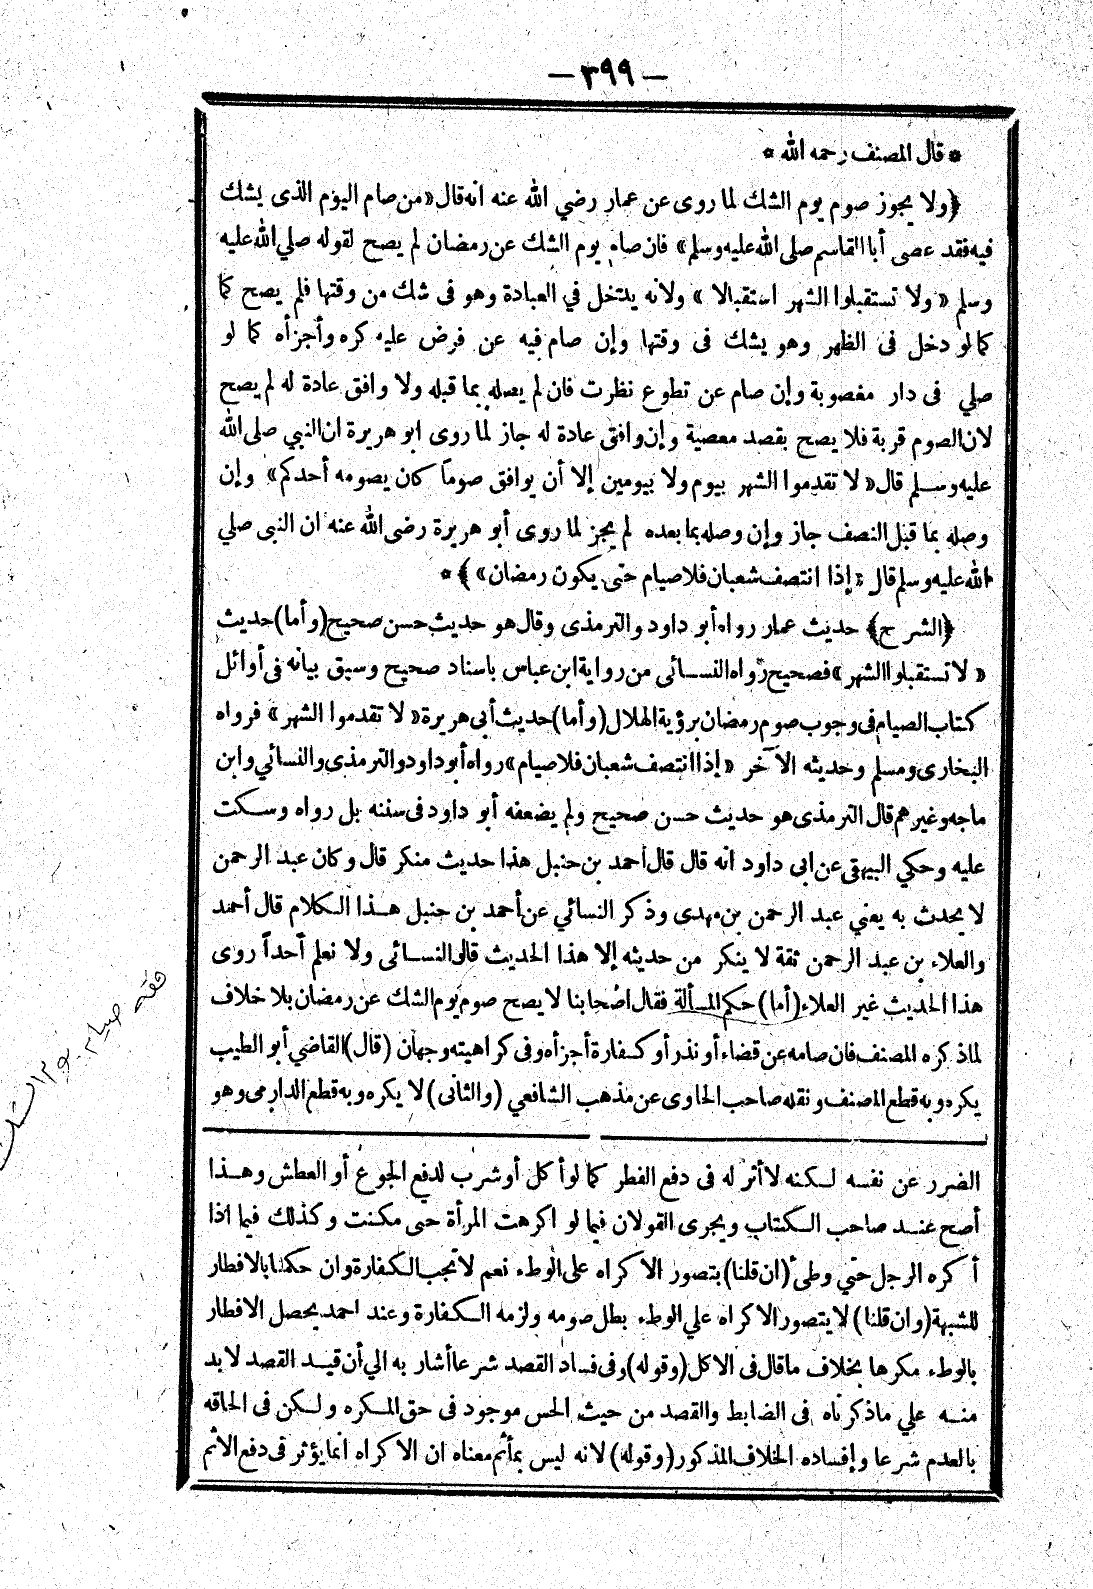 — ٣٩٩ —
* قال المصنف رحمه الله *
﴿ ولا يجوز صوم يوم الشك لما روى عن عمار رضي الله عنه انه قال « من صام اليوم الذى يشك
فيه فقد عصى أبا القاسم صلى الله عليه وسلم » فان صام يوم الشك عن رمضان لم يصح لقوله صلي الله عليه
وسلم « ولا تستقبلوا الشهر استقبالا » ولانه يدخل في العبادة وهو فى شك من وقتها فلم يصح كما
كما لو دخل فى الظهر وهو يشك فى وقتها وإن صام فيه عن فرض عليه كره وأجزأه كما لو
صلي فى دار مغصوبة وإن صام عن تطوع نظرت فان لم يصله بما قبله ولا وافق عادة له لم يصح
لان الصوم قربة فلا يصح بقصد معصية وإن وافق عادة له جاز لما روى ابو هريرة ان النبي صلى الله
عليه وسلم قال « لا تقدموا الشهر بيوم ولا بيومين إلا أن يوافق صوماً كان يصومه أحدكم » وإن
وصله بما قبل النصف جاز وإن وصله بما بعده لم يجز لما روى أبو هريرة رضى الله عنه ان النبى صلي
الله عليه وسلم قال « إذا انتصف شعبان فلا صيام حتى يكون رمضان » ﴾ *
﴿ الشرح ﴾ حديث عمار رواه أبو داود والترمذى وقال هو حديث حسن صحيح (وأما) حديث
« لا تستقبلوا الشهر » فصحيح رواه النسائى من رواية ابن عباس باسناد صحيح وسبق بيانه فى أوائل
كتاب الصيام فى وجوب صوم رمضان برؤية الهلال (وأما) حديث أبى هريرة « لا تقدموا الشهر » فرواه
البخارى ومسلم وحديثه الآخر « إذا انتصف شعبان فلا صيام » رواه أبو داود والترمذى والنسائي وابن
ماجه وغيرهم قال الترمذى هو حديث حسن صحيح ولم يضعفه أبو داود فى سننه بل رواه وسكت
عليه وحكي البيهقى عن ابى داود انه قال قال أحمد بن حنبل هذا حديث منكر قال وكان عبد الرحمن
لا يحدث به يعني عبد الرحمن بن مهدى وذكر النسائي عن أحمد بن حنبل هذا الكلام قال أحمد
والعلاء بن عبد الرحمن ثقة لا ينكر من حديثه إلا هذا الحديث قال النسائى ولا نعلم أحداً روى
هذا الحديث غير العلاء (أما) حكم المسألة فقال اصحابنا لا يصح صوم يوم الشك عن رمضان بلا خلاف
لما ذكره المصنف فان صامه عن قضاء أو نذر أو كفارة أجزأه وفى كراهيته وجهان (قال) القاضي أبو الطيب
يكره وبه قطع المصنف ونقله صاحب الحاوى عن مذهب الشافعي (والثانى) لا يكره وبه قطع الدارمى وهو
الضرر عن نفسه لكنه لا أثر له فى دفع الفطر كما لو أكل أو شرب لدفع الجوع أو العطش وهذا
أصح عند صاحب الكتاب ويجرى القولان فيما لو اكرهت المرأة حتى مكنت وكذلك فيما اذا
أكره الرجل حتي وطئ (ان قلنا) يتصور الاكراه على الوطء نعم لا تجب الكفارة وان حكمنا بالافطار
للشبهة (وان قلنا) لا يتصور الاكراه علي الوطء بطل صومه ولزمه الكفارة وعند احمد يحصل الافطار
بالوطء مكرها بخلاف ما قال فى الاكل (وقوله) وفى فساد القصد شرعا أشار به الي أن قيد القصد لا بد
منه علي ما ذكرناه فى الضابط والقصد من حيث الحس موجود فى حق المكره ولكن فى الحاقه
بالعدم شرعا وإفساده الخلاف المذكور (وقوله) لانه ليس بمأثم معناه ان الاكراه انما يؤثر فى دفع الاثم
فقه صيام يوم الشك